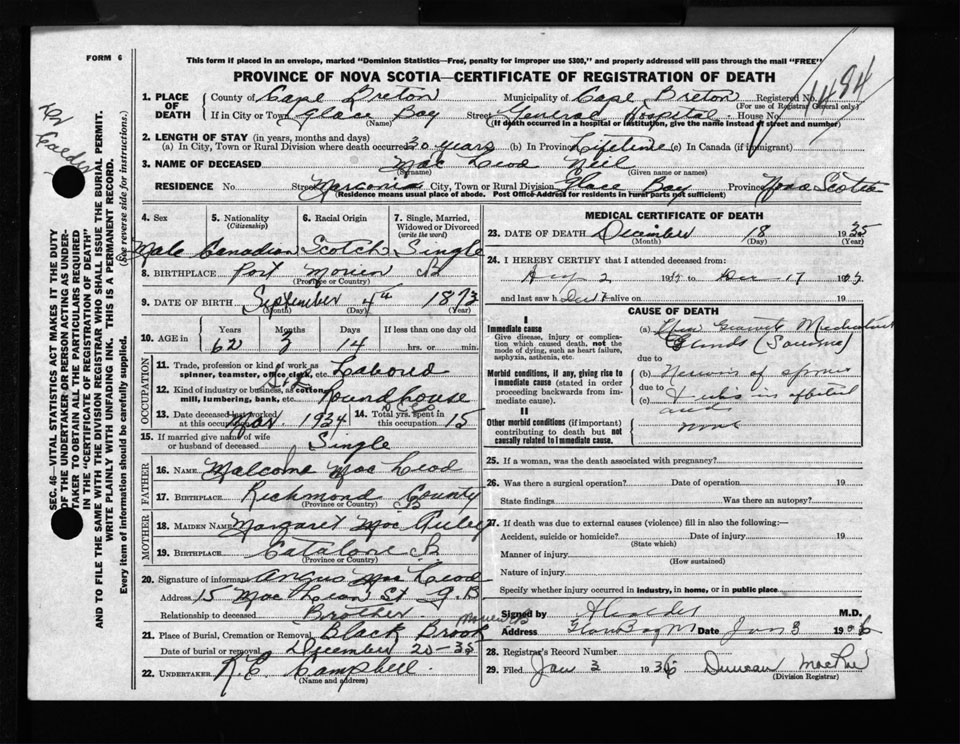 FORM 6
This form if placed in an envelope, marked "Dominion Statistics—Free, penalty for improper use $300," and properly addressed will pass through the mail "FREE"
PROVINCE OF NOVA SCOTIA—CERTIFICATE OF REGISTRATION OF DEATH
1494
1. PLACE OF DEATH
County of Cape Breton Municipality of Cape Breton Registered No.
(For use of Registrar General only)
If in City or Town Glace Bay Street General Hospital House No.
(Name) (If death occurred in a hospital or institution, give the name instead of street and number)
2. LENGTH OF STAY (in years, months and days)
(a) In City, Town or Rural Division where death occurred 30 years (b) In Province Lifetime (c) In Canada (if immigrant)
3. NAME OF DECEASED Mac Leod Neil
(Surname) (Given name or names)
RESIDENCE No. Street Marconi City, Town or Rural Division Glace Bay Province Nova Scotia
(Residence means usual place of abode. Post Office Address for residents in rural parts not sufficient)
4. Sex
5. Nationality (Citizenship)
6. Racial Origin
7. Single, Married, Widowed or Divorced (write the word)
Male Canadian Scotch Single
8. BIRTHPLACE Port Morien CB
(Province or Country)
9. DATE OF BIRTH September 4th 1873
(Month) (Day) (Year)
10. AGE in
Years Months Days If less than one day old
62 3 14 hrs. or min.
OCCUPATION
11. Trade, profession or kind of work as spinner, teamster, office clerk, etc.
12. Kind of industry or business, as cotton mill, lumbering, bank, etc. Roundhouse
13. Date deceased last worked at this occupation 1934 14. Total yrs. spent in this occupation 15
15. If married give name of wife or husband of deceased Single
FATHER
16. NAME Malcolm Mac Leod
17. BIRTHPLACE Richmond County CB
(Province or Country)
MOTHER
18. MAIDEN NAME Margaret Mac Auley
19. BIRTHPLACE Catalone CB
(Province or Country)
20. Signature of informant Angus Mac Leod
Address 15 Mac Lean St G.B
Relationship to deceased Brother
21. Place of Burial, Cremation or Removal Black Brook
Date of burial or removal December 20-35
22. UNDERTAKER R.C. Campbell
(Name and address)
MEDICAL CERTIFICATE OF DEATH
23. DATE OF DEATH December 18 1935
(Month) (Day) (Year)
24. I HEREBY CERTIFY that I attended deceased from:
Aug 2 19 to Dec 17 19
and last saw h alive on 19
CAUSE OF DEATH
I
Immediate cause
Give disease, injury or complication which caused death, not the mode of dying, such as heart failure, asphyxia, asthenia, etc.
(a) Mediastinal
Glands (Sarcoma)
due to
Morbid conditions, if any, giving rise to immediate cause (stated in order proceeding backwards from immediate cause).
(b) of
due to
(c)
II
Other morbid conditions (if important) contributing to death but not causally related to immediate cause.
none
25. If a woman, was the death associated with pregnancy?
26. Was there a surgical operation? Date of operation 19
State findings Was there an autopsy?
27. If death was due to external causes (violence) fill in also the following:—
Accident, suicide or homicide? Date of injury 19
(State which)
Manner of injury
(How sustained)
Nature of injury
Specify whether injury occurred in industry, in home, or in public place
Signed by M.D.
Address Glace Bay Date Jan 3 1936
28. Registrar's Record Number
29. Filed Jan 3 1936 Duncan MacRae
(Division Registrar)
SEC. 46—VITAL STATISTICS ACT MAKES IT THE DUTY
OF THE UNDERTAKER OR PERSON ACTING AS UNDER-
TAKER TO OBTAIN ALL THE PARTICULARS REQUIRED
IN THE "CERTIFICATE OF REGISTRATION OF DEATH"
AND TO FILE THE SAME WITH THE DIVISION REGISTRAR WHO SHALL ISSUE THE BURIAL PERMIT.
WRITE PLAINLY WITH UNFADING INK. THIS IS A PERMANENT RECORD.
Every item of information should be carefully supplied. (See reverse side for instructions.)